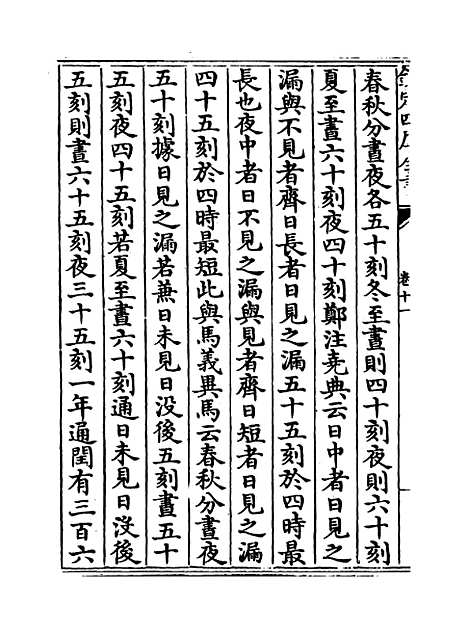 欽定四庫全書
卷十一
春秋分晝夜各五十刻冬至晝則四十刻夜則六十刻
夏至晝六十刻夜四十刻鄭注堯典云日中者日見之
漏與不見者齊日長者日見之漏五十五刻於四時最
長也夜中者日不見之漏與見者齊日短者日見之漏
四十五刻於四時最短此與馬義異馬云春秋分晝夜
五十刻據日見之漏若兼日未見日没後五刻晝五十
五刻夜四十五刻若夏至晝六十刻通日未見日没後
五刻則晝六十五刻夜三十五刻一年通閏有三百六